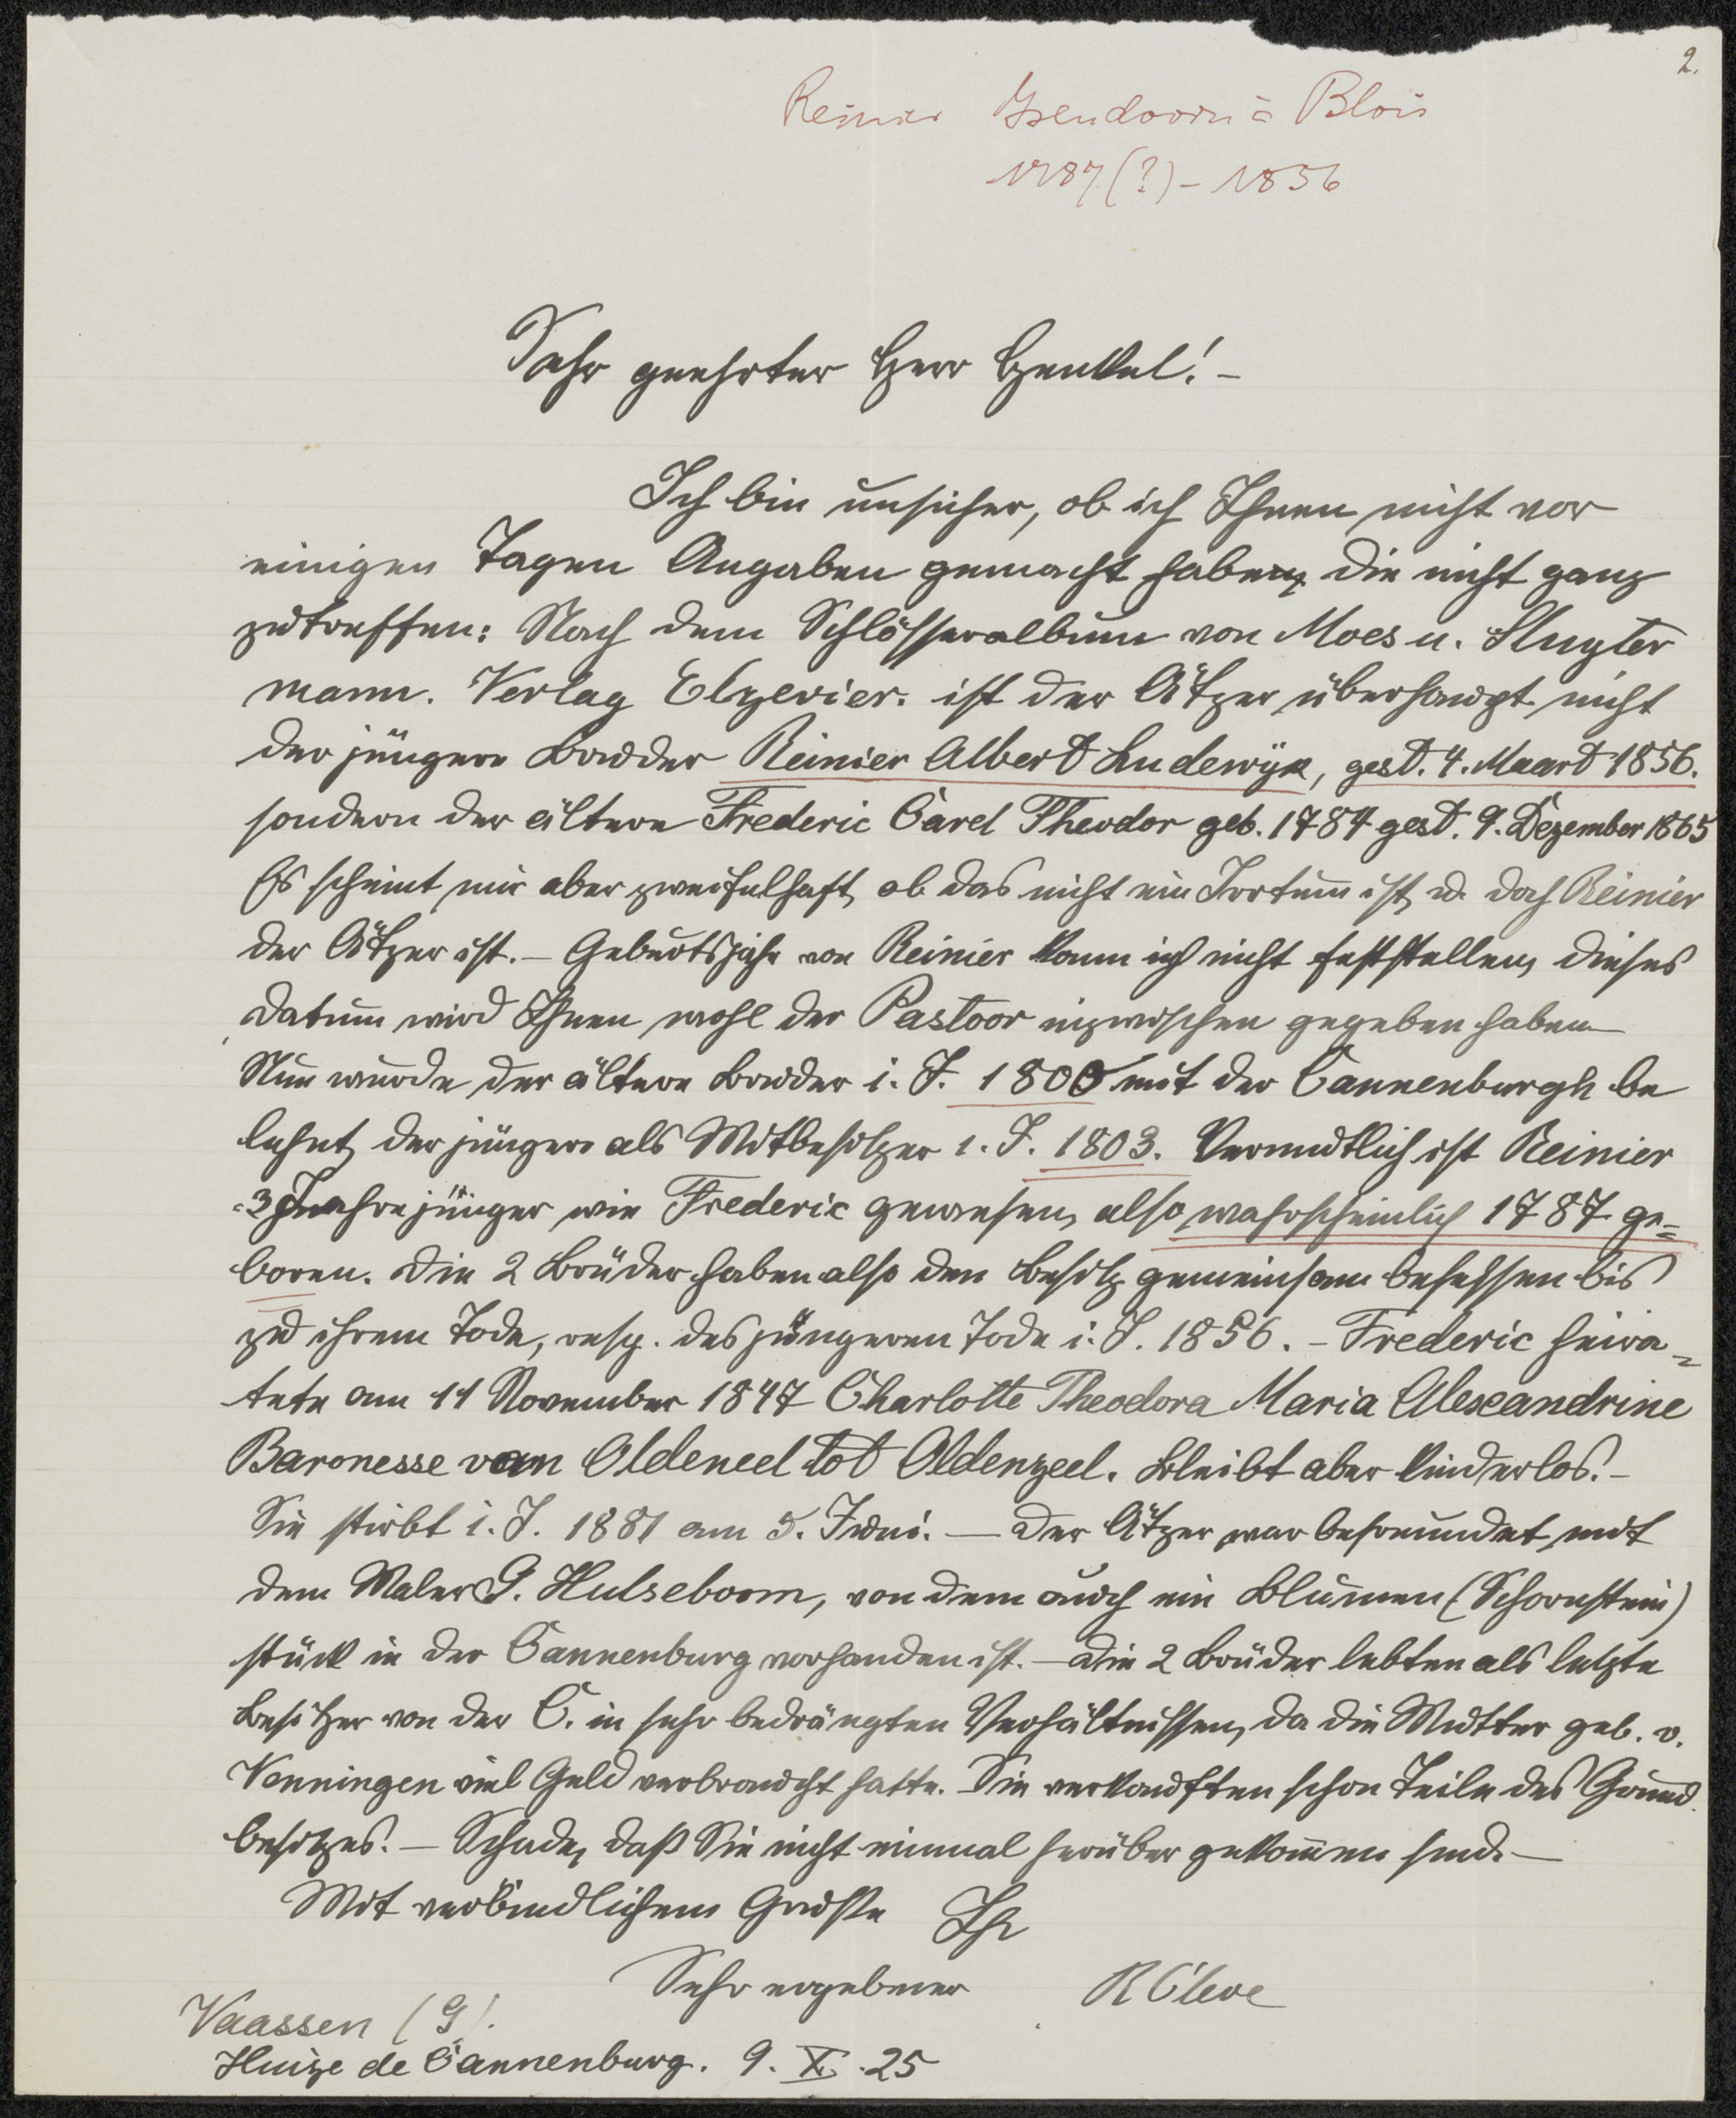 2.
Reinier Isendoorn à Blois
1787(?) - 1856
Sehr geehrter Herr Henkel! –
Ich bin unsicher, ob ich Ihnen nicht vor
einigen Tagen Angaben gemacht habe, die nicht ganz
zutreffen: Nach dem Schlösseralbum von Moes u. Sluyter
mann. Verlag Elzevier. ist der Ätzer überhaupt nicht
der jüngere Bruder Reinier Albert Ludewijk, gest. 4. Maart 1856.
sondern der ältere Frederic Carel Theodor geb. 1784 gest. 9. Dezember 1865
Es scheint mir aber zweifelhaft, ob das nicht ein Irrtum ist, u. doch Reinier
der Ätzer ist. – Geburtsjahr von Reinier kann ich nicht feststellen, dieses
Datum wird Ihnen wohl der Pastoor inzwischen gegeben haben
Nun wurde der ältere Bruder i. J. 1800 mit der Cannenburgh be
lehnt, der jüngere als Mitbesitzer i. J. 1803. Vermutlich ist Reinier
3 Jahre jünger wie Frederic gewesen, also wahrscheinlich 1787 ge=
boren. Die 2 Brüder haben also den Besitz gemeinsam besessen bis
zu ihrem Tode, resp. des jüngeren Tode i. J. 1856. – Frederic heira=
tete am 11 November 1847 Charlotte Theodora Maria Alexandrine
Baronesse van Oldeneel tot Oldenzeel. Bleibt aber kinderlos. –
Sie stirbt i. J. 1881 am 5. Juni. – Der Ätzer war befreundet mit
dem Maler G. Hulseboom, von dem auch ein Blumen (Schornstein)
stück in der Cannenburg vorhanden ist. – Die 2 Brüder lebten als letzte
Besitzer von der C. in sehr bedrängten Verhältnissen, da die Mutter geb. v.
Venningen viel Geld verbraucht hatte. Sie verkauften schon Teile des Grund
besitzes. – Schade, daß Sie nicht einmal herüber gekommen sind. –
Mit verbindlichem Gruße Ihr
Sehr ergebener R Cleve
Vaassen (G).
Huize de Cannenburg. 9. X. 25